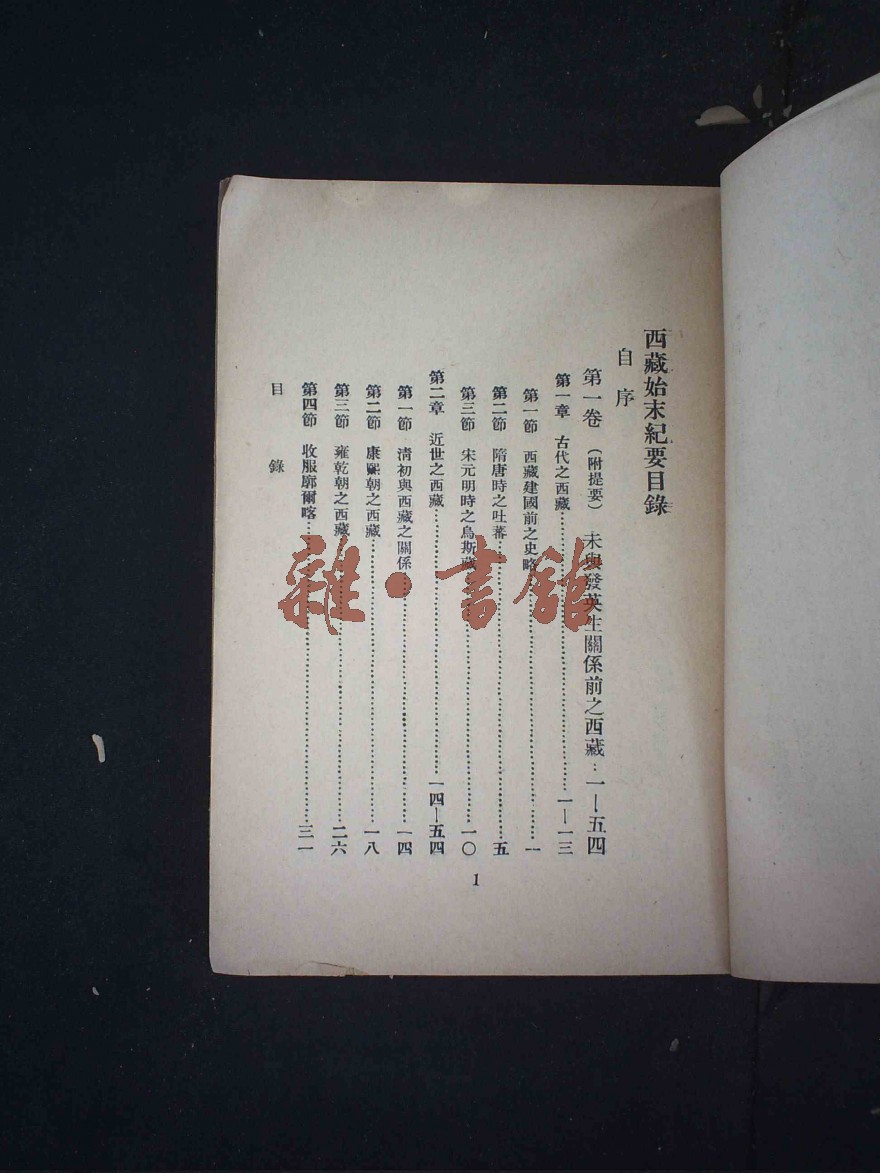 西藏始末紀要目錄
自序
第一卷 (附提要) 未與發英生關係前之西藏：一—五四
第一章 古代之西藏……一—一三
第一節 西藏建國前之史略……一
第二節 隋唐時之吐蕃……五
第三節 宋元明時之烏斯藏……一〇
第二章 近世之西藏……一四—五四
第一節 清初與西藏之關係……一四
第二節 康熙朝之西藏……一八
第三節 雍乾朝之西藏……二六
第四節 收服廓爾喀……三一
目錄
1
雜·書館